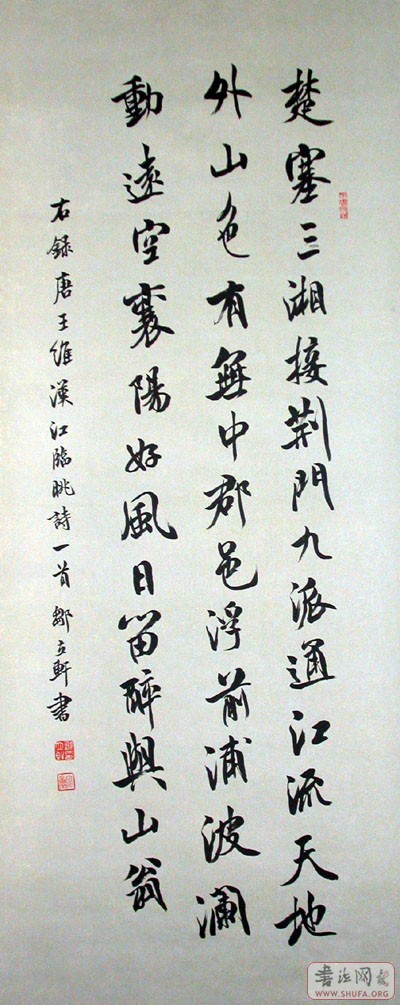 楚塞三湘接荆門九派通江流天地
外山色有無中郡邑浮前浦波瀾
動遠空襄陽好風日留醉與山翁
右録唐王維漢江臨眺詩一首鄒立軒書
書法网
WWW.SHUFA.ORG